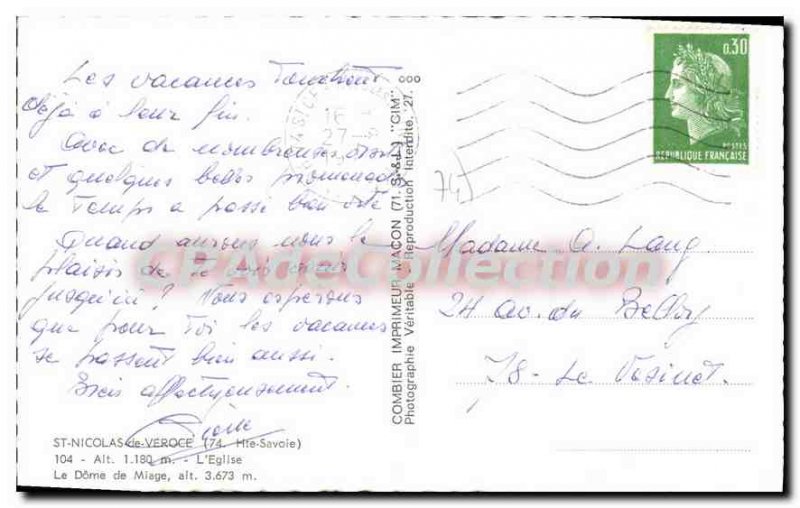 Les vacances touchent
déjà à leur fin.
Avec de nombreuses
et quelques belles promenades
le temps a passé bien vite
Quand aurons nous le
plaisir de te
jusqu'ici? Nous espérons
que pour toi les vacances
se passent bien aussi.
Bien affectueusement.
ST-NICOLAS-de-VEROCE (74. Hte-Savoie)
104 - Alt. 1.180 m. - L'Eglise
Le Dôme de Miage, alt. 3.673 m.
COMBIER IMPRIMEUR MACON (71. S.-&-L.) "CIM"
Photographie Véritable - Reproduction Interdite. 27.
0.30
POSTES
REPUBLIQUE FRANÇAISE
16
27-
74
Madame A. Lang
24 av. du Belloy
78 - Le Vésinet.
CPADeCollection